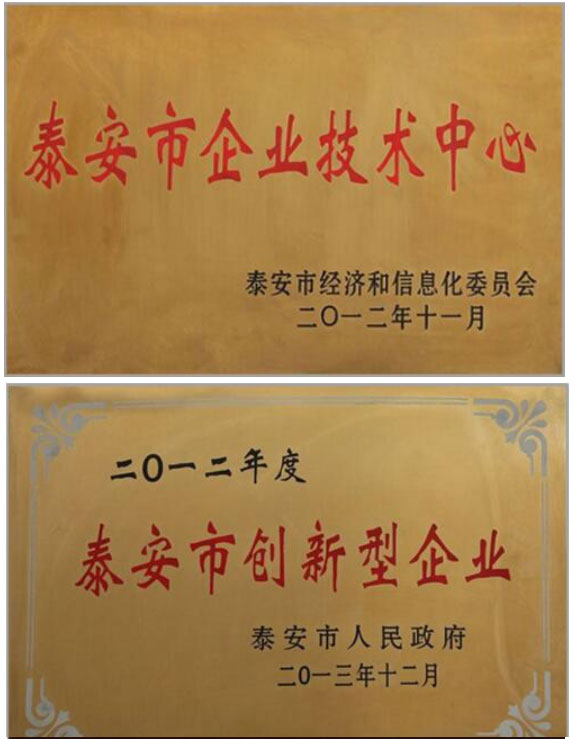 泰安市企业技术中心
泰安市经济和信息化委员会
二〇一二年十一月
二〇一二年度
泰安市创新型企业
泰安市人民政府
二〇一三年十二月